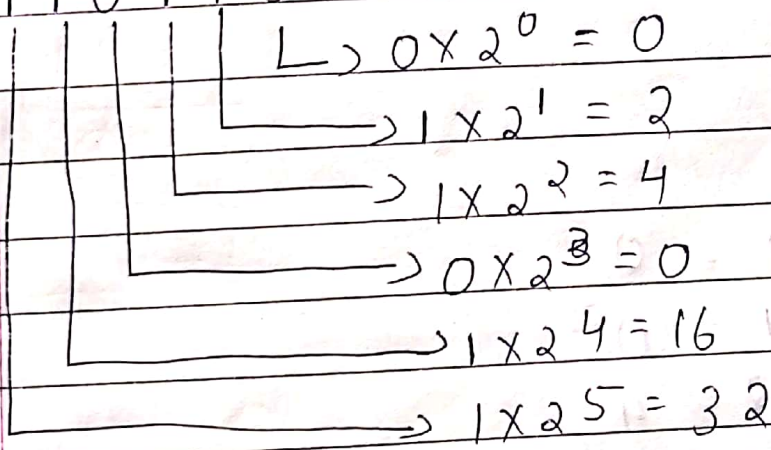 0 × 2⁰ = 0
1 × 2¹ = 2
1 × 2² = 4
0 × 2³ = 0
1 × 2⁴ = 16
1 × 2⁵ = 32